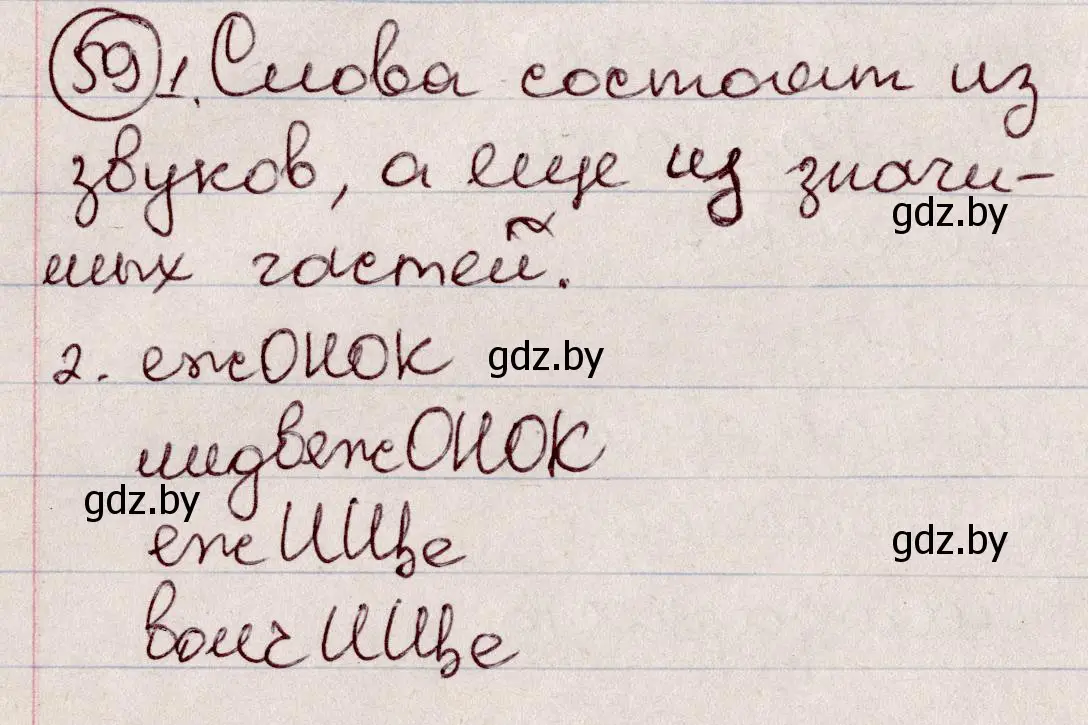 59 1. Слова состоят из
звуков, а еще из значи-
мых частей.
gdz.by
2. ежОНОК gdz.by
мидвежОНОК
gdz.by
ежИЩе gdz.by
волчИЩе